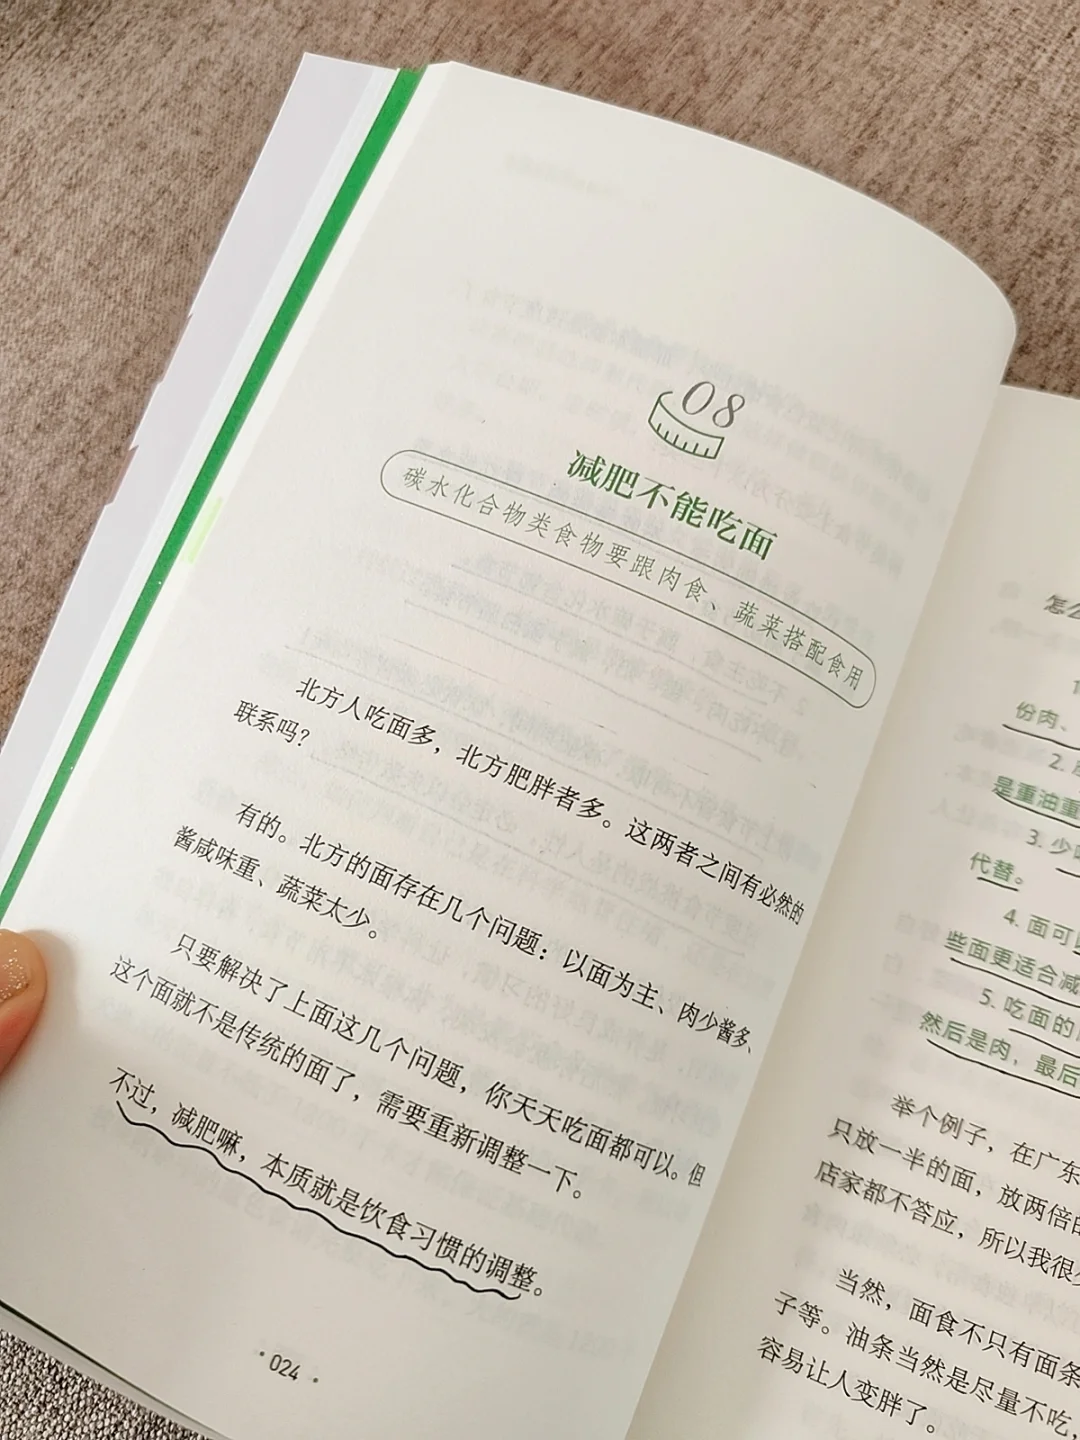 08
减肥不能吃面
碳水化合物类食物要跟肉食、蔬菜搭配食用
北方人吃面多，北方肥胖者多。这两者之间有必然的
联系吗？
有的。北方的面存在几个问题：以面为主、肉少酱多、
酱咸味重、蔬菜太少。
只要解决了上面这几个问题，你天天吃面都可以。但
这个面就不是传统的面了，需要重新调整一下。
不过，减肥嘛，本质就是饮食习惯的调整。
·024·
怎么
份肉、
2.
是重油重
3. 少
代替。
4. 面可
些面更适合减
5. 吃面的
然后是肉，最后
举个例子，在广东
只放一半的面，放两倍的
店家都不答应，所以我很
当然，面食不只有面条
子等。油条当然是尽量不吃，
容易让人变胖了。